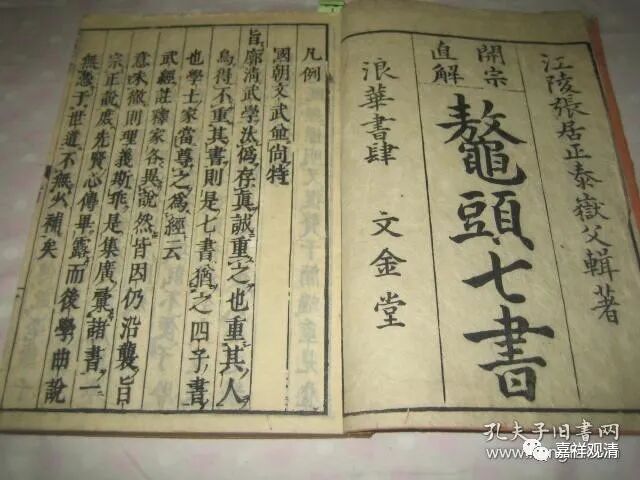 江陵張居正泰嶽父輯著
開宗
直解
鼇頭七書
浪華書肆 文金堂
凡例
國朝文武僉尚特
旨廓清武學汰僞存眞誠重之也重其人
烏得不重其書則是七書猶之四子書
也學士家當尊之爲經云
武經註釋家各異說然皆因仍沿襲旨
意味徹則理義斯乖是集廣彙諸書一
宗正說庶先賢心傳畢露而後學曲說
無惑于世道不無少補矣
孔夫子旧书网
嘉祥观清